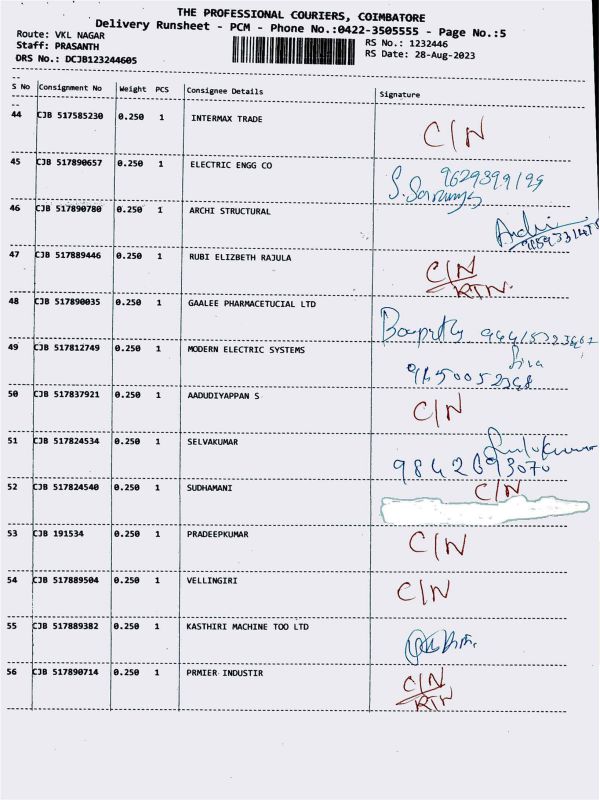 THE PROFESSIONAL COURIERS, COIMBATORE
Delivery Runsheet - PCM - Phone No.:0422-3505555 - Page No.:5
Route: VKL NAGAR
Staff: PRASANTH
DRS No.: DCJB123244605
RS No.: 1232446
RS Date: 28-Aug-2023
S No Consignment No Weight PCS Consignee Details Signature
44 CJB 517585230 0.250 1 INTERMAX TRADE C/N
45 CJB 517890657 0.250 1 ELECTRIC ENGG CO
46 CJB 517890780 0.250 1 ARCHI STRUCTURAL
47 CJB 517889446 0.250 1 RUBI ELIZBETH RAJULA C/N
RTN.
48 CJB 517890035 0.250 1 GAALEE PHARMACETUCIAL LTD
49 CJB 517812749 0.250 1 MODERN ELECTRIC SYSTEMS
50 CJB 517837921 0.250 1 AADUDIYAPPAN S C/N
51 CJB 517824534 0.250 1 SELVAKUMAR
9842693070
52 CJB 517824540 0.250 1 SUDHAMANI C/N
53 CJB 191534 0.250 1 PRADEEPKUMAR C/N
54 CJB 517889504 0.250 1 VELLINGIRI C/N
55 CJB 517889382 0.250 1 KASTHIRI MACHINE TOO LTD
56 CJB 517890714 0.250 1 PRMIER INDUSTIR C/N
RTN